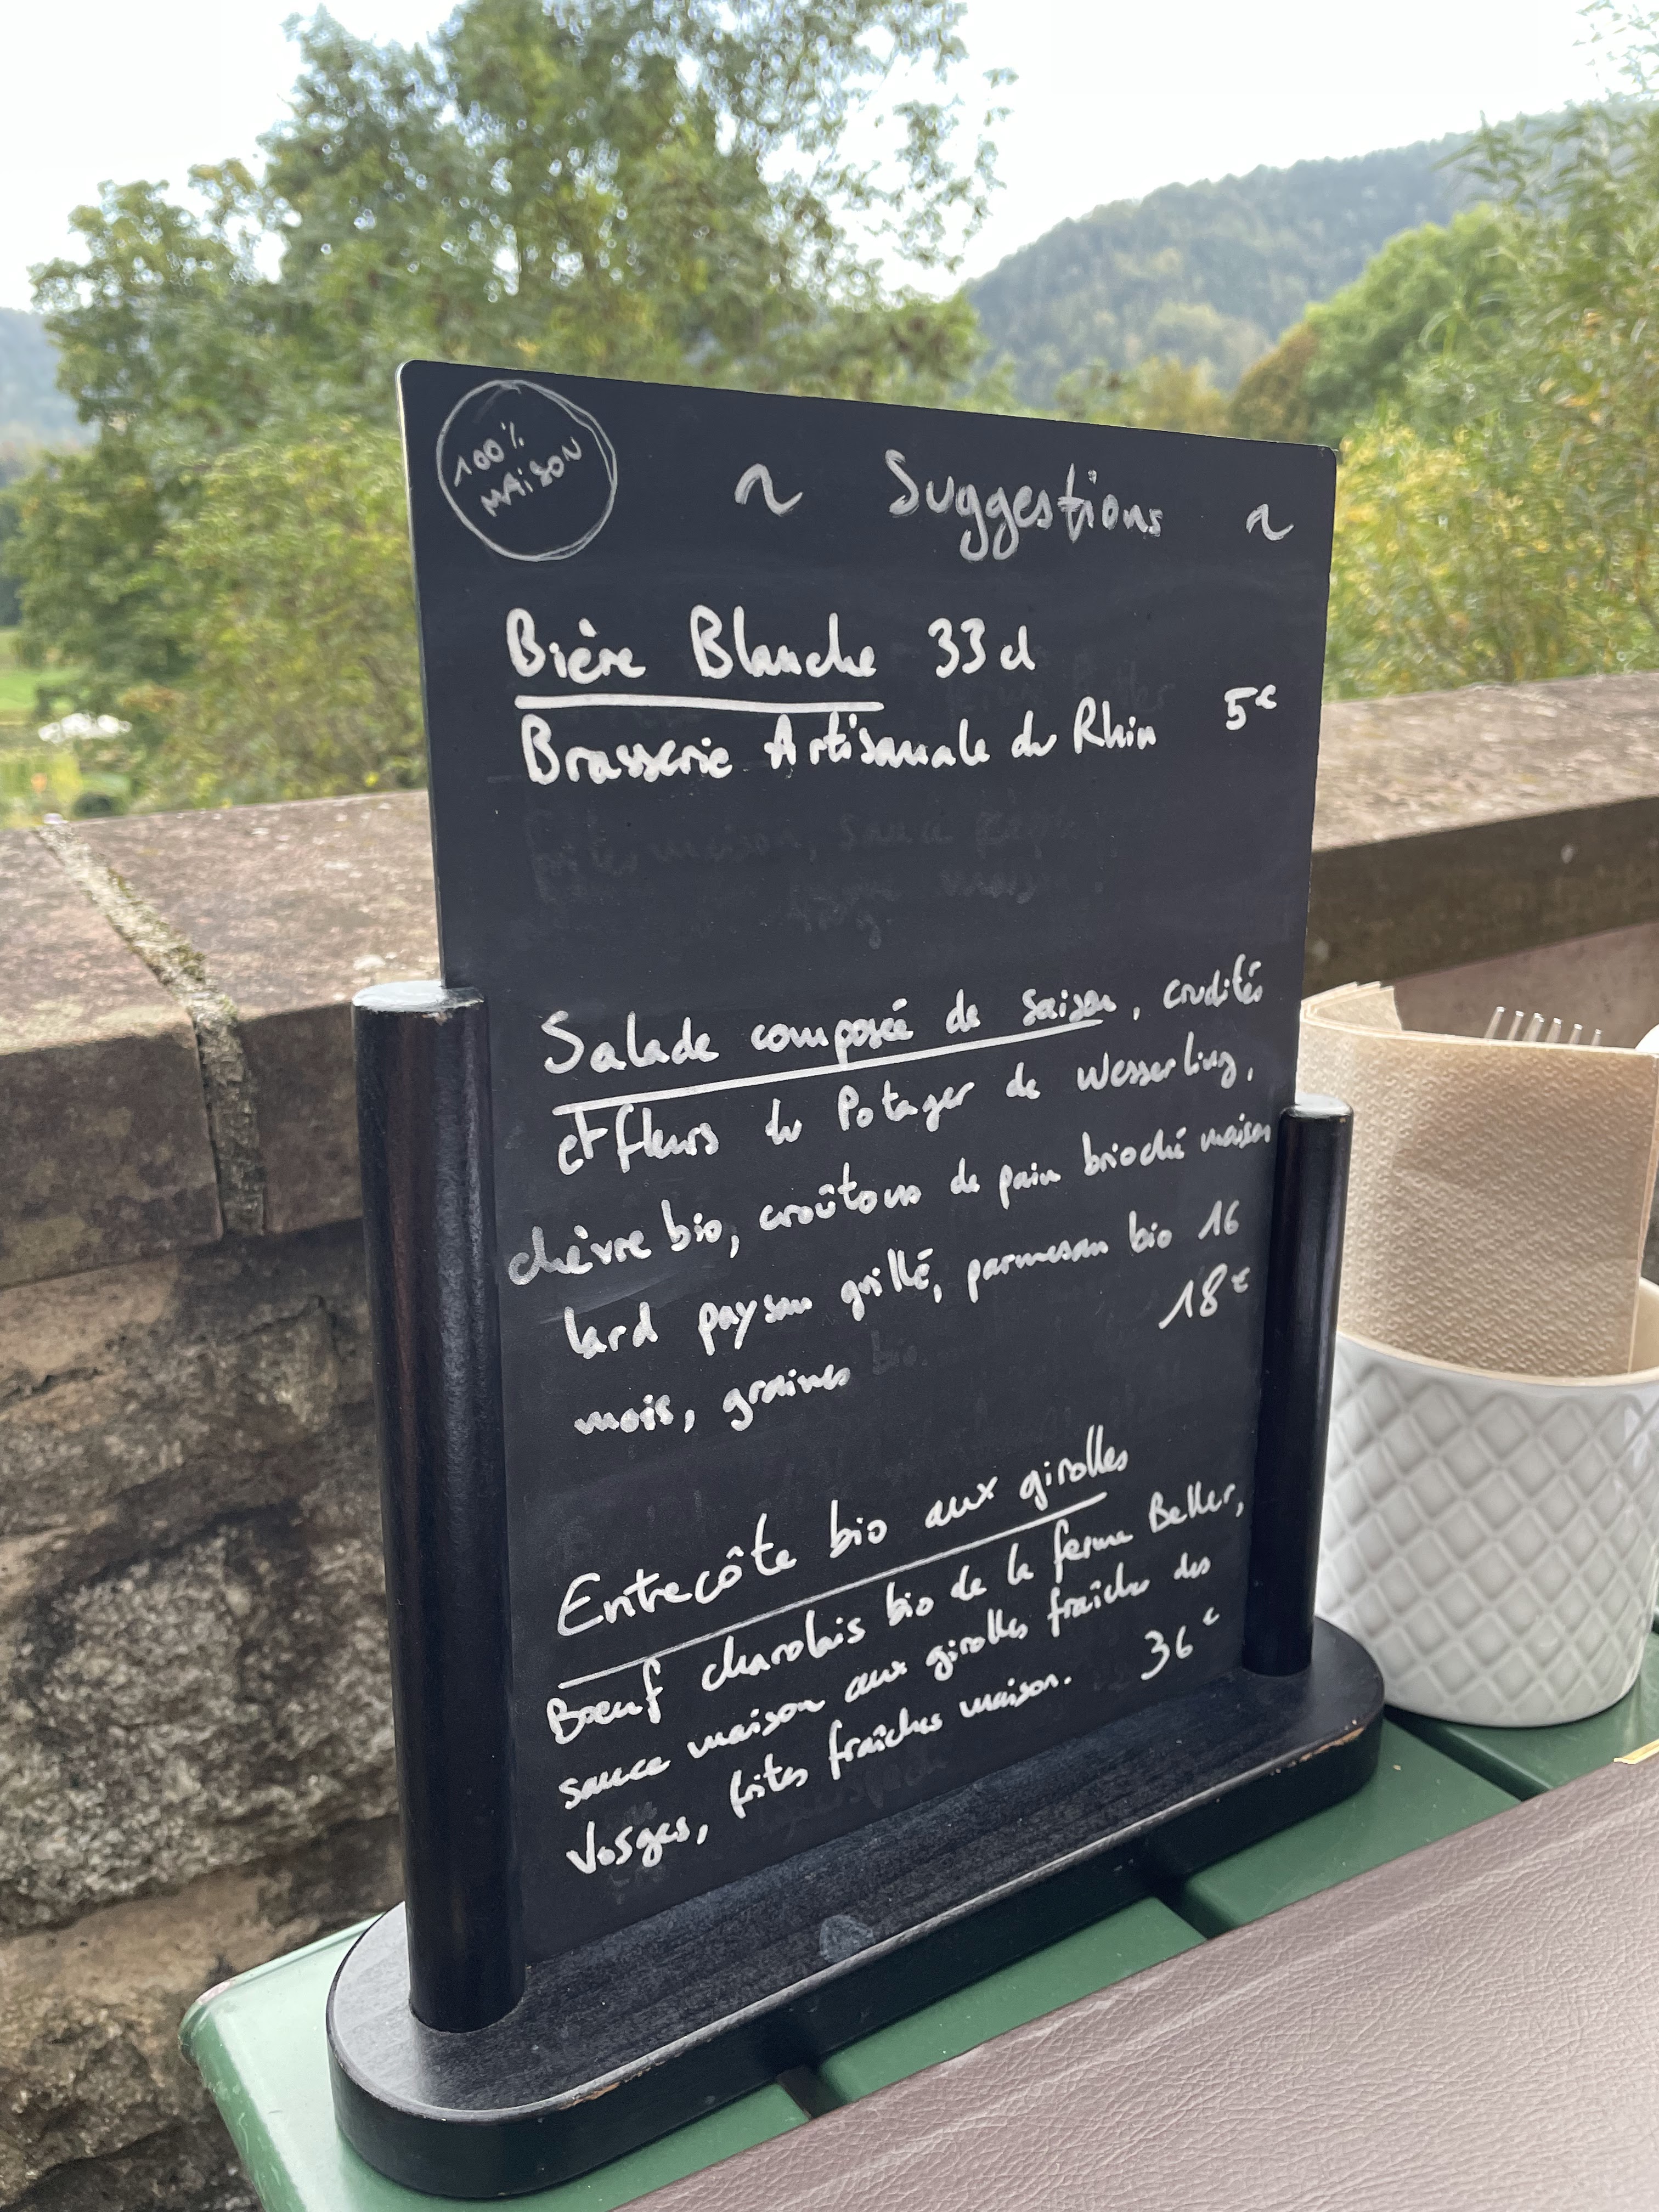 100%
MAISON
~ Suggestions ~
Bière Blanche 33cl
Brasserie Artisanale du Rhin 5€
Salade composée de saison, crudités
et fleurs du Potager de Wesserling,
chèvre bio, croûtons de pain brioché maison
lard paysan grillé, parmesan bio 16
18€
mois, graines bio.
Entrecôte bio aux girolles
Boeuf charolais bio de la ferme Beller,
sauce maison aux girolles fraîches des
Vosges, frites fraîches maison. 36€